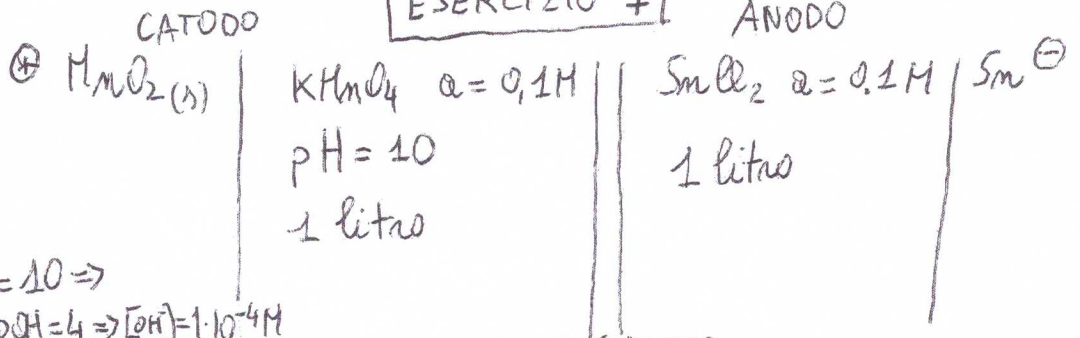 CATODO ESERCIZIO ANODO
⊕ MnO2(s) | KMnO4 a = 0,1M || SnCl2 a = 0.1M | Sn ⊖
pH = 10
1 litro 1 litro
= 10 =>
pOH = 4 => [OH⁻] = 1·10⁻⁴M